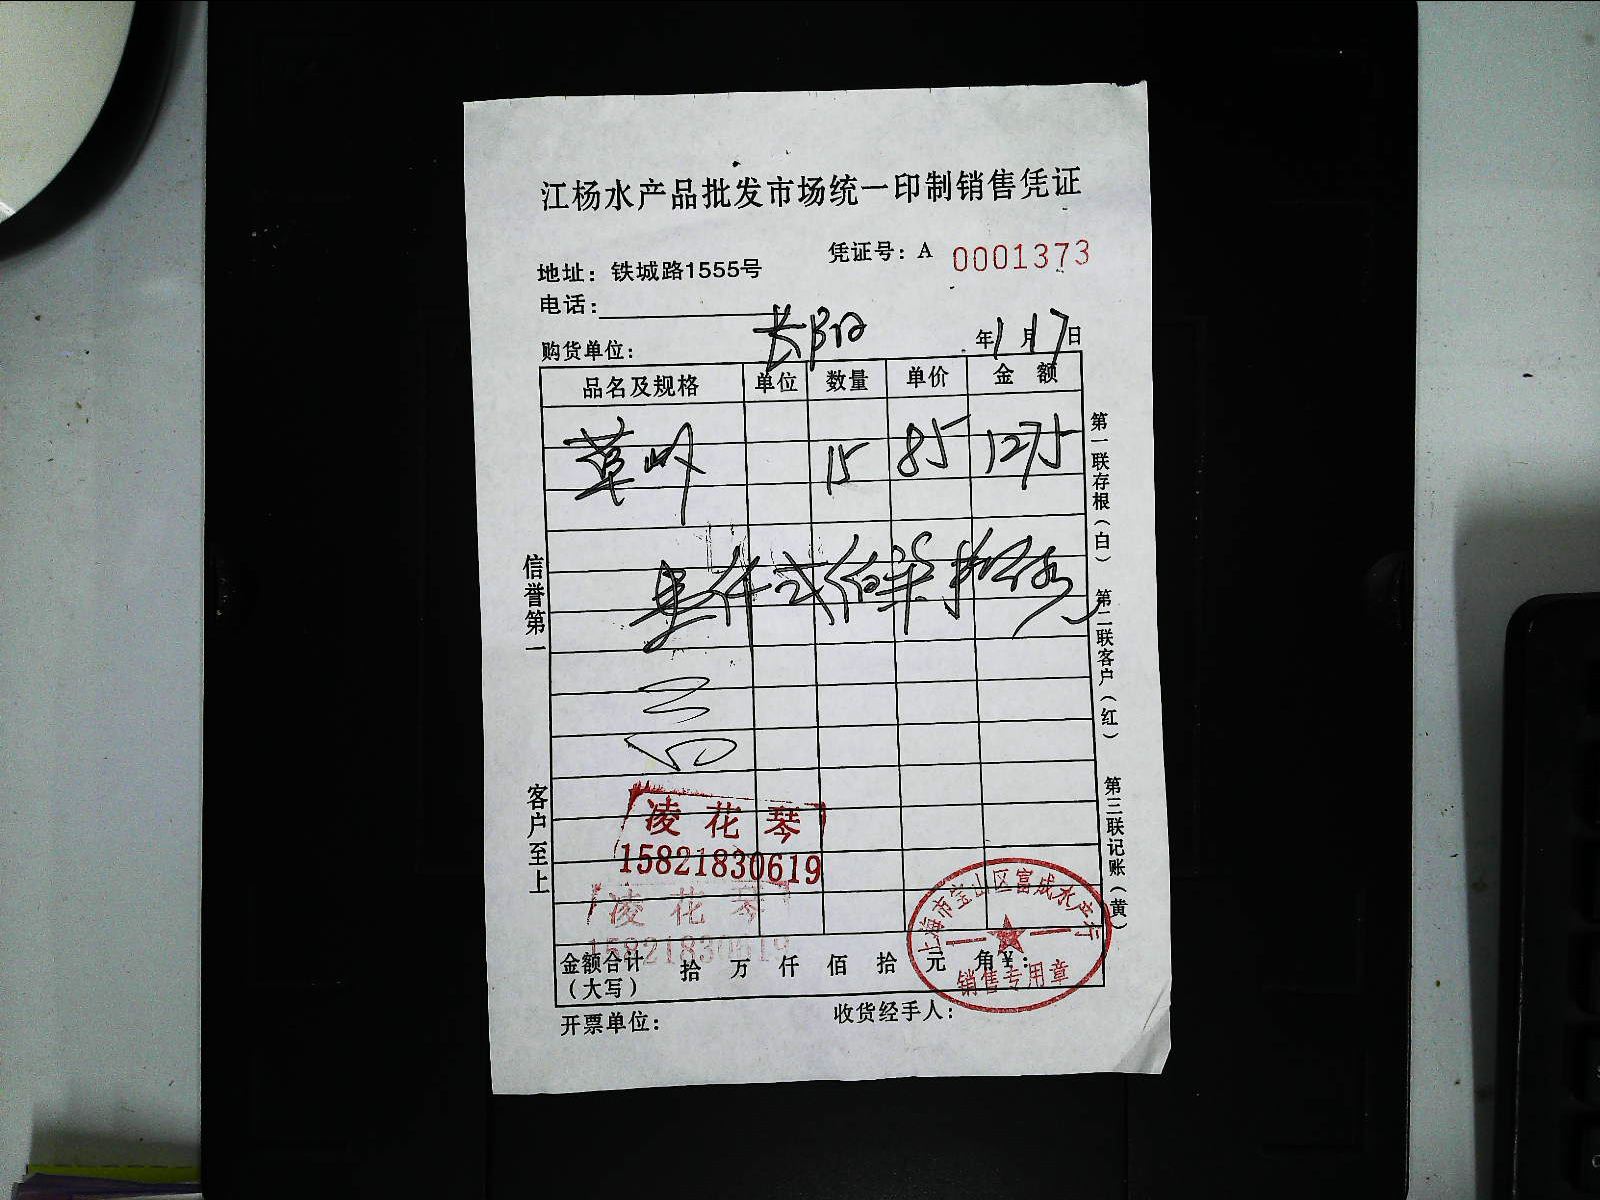 江杨水产品批发市场统一印制销售凭证
凭证号：A 0001373
地址：铁城路1555号
电话：
购货单位： 长阳 年1月17日
品名及规格 单位 数量 单价 金 额
草 15 85 1275
壹仟贰佰柒拾伍元
凌花琴
15821830619
凌花琴
15821830619
金额合计（大写） 拾 万 仟 佰 拾 元 角 ¥：
开票单位： 收货经手人：
信誉第一 客户至上
第一联存根（白） 第二联客户（红） 第三联记账（黄）
上海市宝山区富成水产行
销售专用章